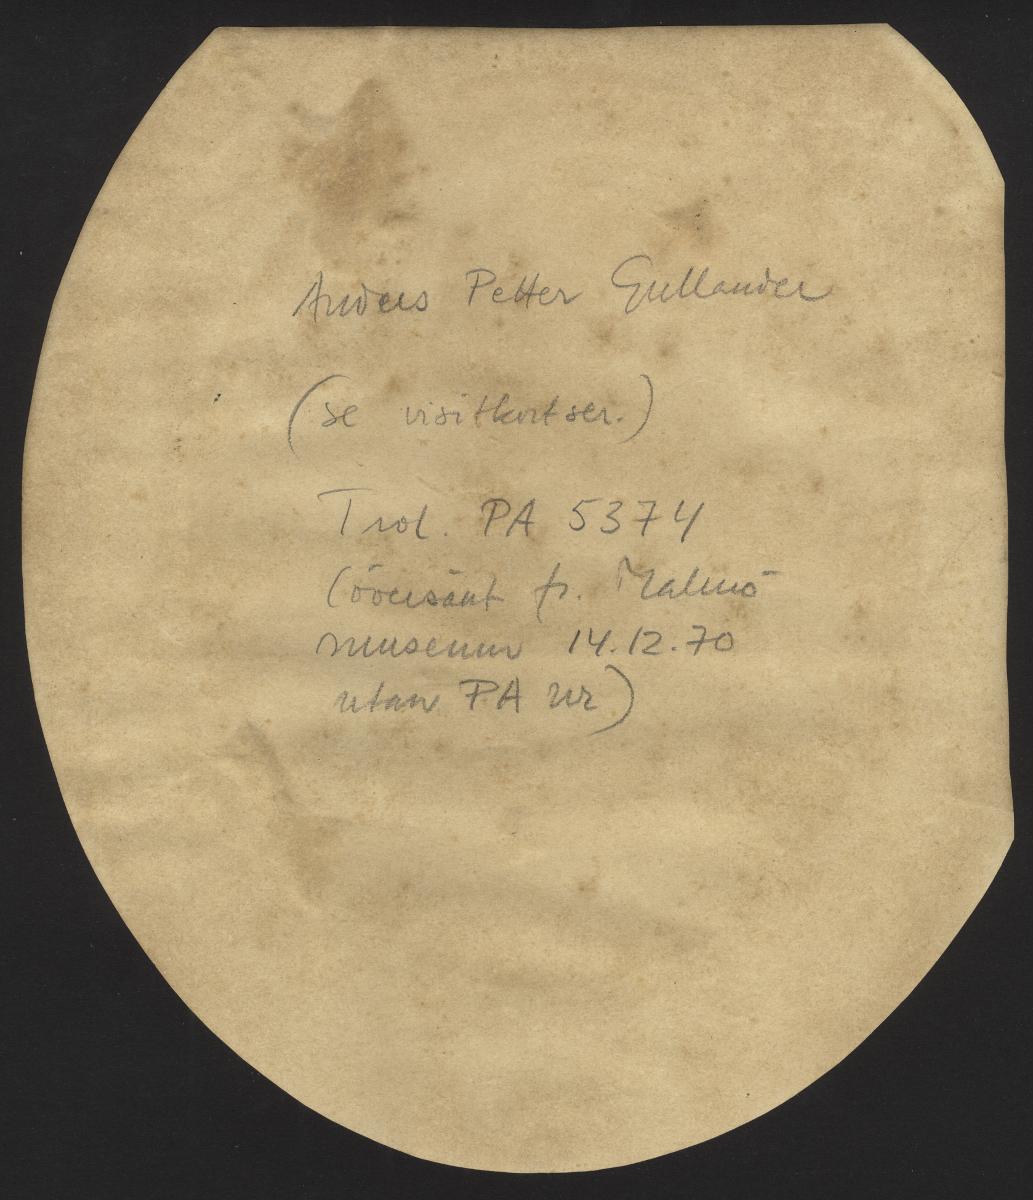 Anders Petter Gullander
(se visitkortser.)
Trol. PA 5374
(översänt fr. Malmö
museum 14.12.70
utan PA nr)